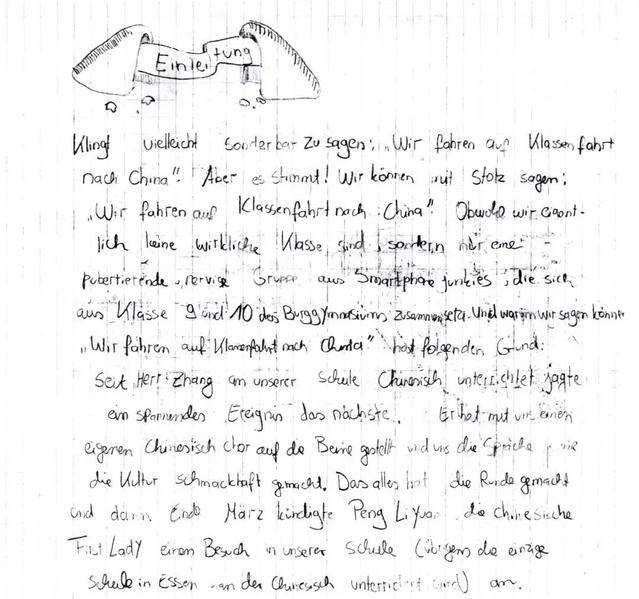 Einleitung
Klingt vielleicht sonderbar zu sagen: „Wir fahren auf Klassenfahrt
nach China". Aber es stimmt! Wir können mit Stolz sagen:
„Wir fahren auf Klassenfahrt nach China". Obwohl wir eigent-
lich keine wirkliche Klasse sind, sondern nur eine
pubertierende, nervige Gruppe aus Smartphone junkies, die sich
aus Klasse 9 und 10 des Burggymnasiums zusammensetzt. Und warum wir sagen können
„Wir fahren auf Klassenfahrt nach China" hat folgenden Grund:
Seit Herr Zhang an unserer Schule Chinesisch unterrichtet jagte
ein spannendes Ereignis das nächste. Er hat mit uns einen
eigenen Chinesisch Chor auf die Beine gestellt und uns die Sprache
die Kultur schmackhaft gemacht. Das alles hat die Runde gemacht
und dann Ende März kündigte Peng Liyuan die chinesische
First Lady einen Besuch in unserer Schule (übrigens die einzige
Schule in Essen an der Chinesisch unterrichtet wird) an.